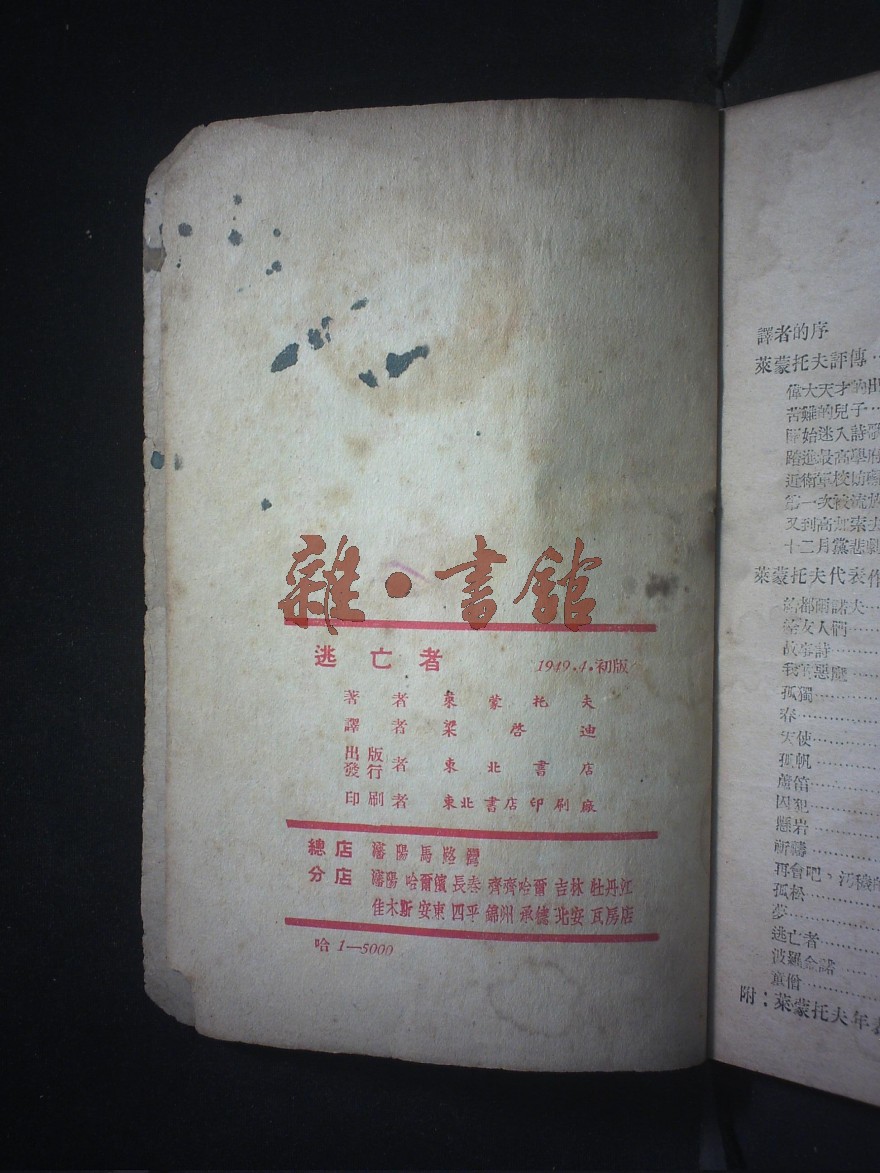 雜·書舘
逃亡者 1949.4.初版
著者 萊蒙托夫
譯者 梁啓迪
出版發行者 東北書店
印刷者 東北書店印刷廠
總店 瀋陽馬路灣
分店 瀋陽 哈爾濱 長春 齊齊哈爾 吉林 牡丹江
佳木斯 安東 四平 錦州 承德 北安 瓦房店
哈 1—5000
譯者的序
萊蒙托夫評傳…
偉大天才的出
苦難的兒子…
開始迷入詩歌
踏進最高學府
近衛軍校
第一次被流放
又到高加索去
十二月黨悲劇
萊蒙托夫代表作
給都爾諾夫…
給友人們…
故事詩…
我在惡魔…
孤獨…
春…
天使…
孤帆…
蘆笛…
囚犯…
懸岩…
祈禱…
再會吧，汚穢的
孤松…
夢…
逃亡者…
波羅金諾…
童僧…
附：萊蒙托夫年表